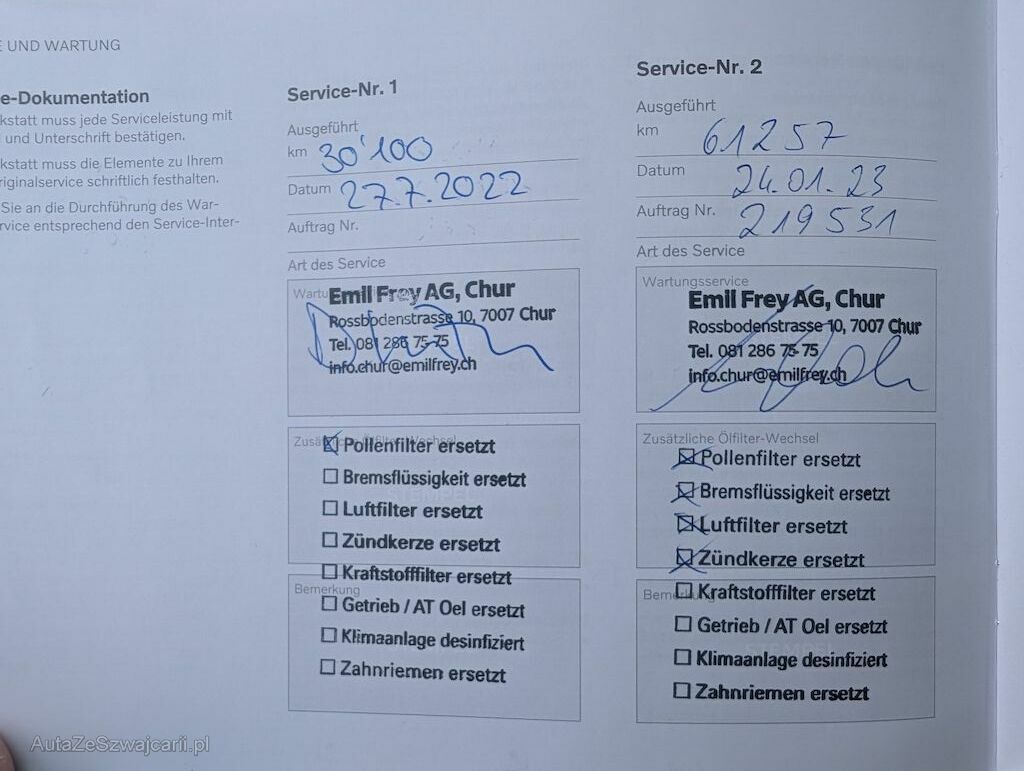 E UND WARTUNG
e-Dokumentation
kstatt muss jede Serviceleistung mit
und Unterschrift bestätigen.
kstatt muss die Elemente zu Ihrem
riginalservice schriftlich festhalten.
Sie an die Durchführung des War-
rvice entsprechend den Service-Inter-
Service-Nr. 1
Ausgeführt
km 30'100
Datum 27.7.2022
Auftrag Nr.
Art des Service
Emil Frey AG, Chur
Rossbodenstrasse 10, 7007 Chur
Tel. 081 286 75 75
info.chur@emilfrey.ch
Zusätzliche Ölfilter-Wechsel
☒ Pollenfilter ersetzt
☐ Bremsflüssigkeit ersetzt
☐ Luftfilter ersetzt
☐ Zündkerze ersetzt
☐ Kraftstofffilter ersetzt
Bemerkung
☐ Getrieb / AT Oel ersetzt
☐ Klimaanlage desinfiziert
☐ Zahnriemen ersetzt
Service-Nr. 2
Ausgeführt
km 61257
Datum 24.01.23
Auftrag Nr. 219531
Art des Service
Wartungsservice
Emil Frey AG, Chur
Rossbodenstrasse 10, 7007 Chur
Tel. 081 286 75 75
info.chur@emilfrey.ch
Zusätzliche Ölfilter-Wechsel
☒ Pollenfilter ersetzt
☒ Bremsflüssigkeit ersetzt
☒ Luftfilter ersetzt
☒ Zündkerze ersetzt
Bemerkung
☐ Kraftstofffilter ersetzt
☐ Getrieb / AT Oel ersetzt
☐ Klimaanlage desinfiziert
☐ Zahnriemen ersetzt
AutaZeSzwajcarii.pl